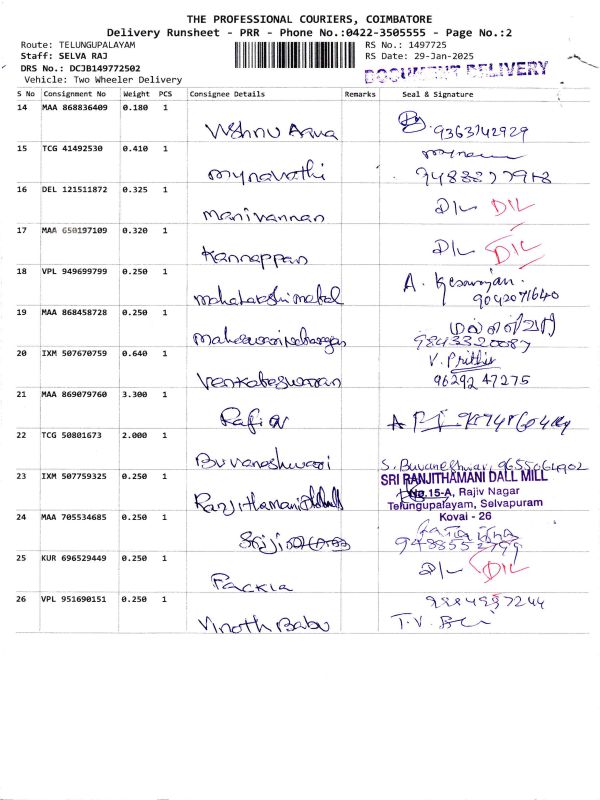 THE PROFESSIONAL COURIERS, COIMBATORE
Delivery Runsheet - PRR - Phone No.:0422-3505555 - Page No.:2
Route: TELUNGUPALAYAM RS No.: 1497725
Staff: SELVA RAJ RS Date: 29-Jan-2025
DRS No.: DCJB149772502
DOCUMENT DELIVERY
Vehicle: Two Wheeler Delivery
S No Consignment No Weight PCS Consignee Details Remarks Seal & Signature
14 MAA 868836409 0.180 1
Vishnu 9363142929
15 TCG 41492530 0.410 1
mynavathi
16 DEL 121511872 0.325 1
Manivannan D/L DIL
17 MAA 650197109 0.320 1
Kannappan D/L DIL
18 VPL 949699799 0.250 1
A. 
9042071640
19 MAA 868458728 0.250 1
9843320087
20 IXM 507670759 0.640 1
V. Prithiv
Venkateswaran 9629247275
21 MAA 869079760 3.300 1
Rafia
22 TCG 50801673 2.000 1
Buvaneshwari S. Buvaneshwari 9655064902
23 IXM 507759325 0.250 1
SRI RANJITHAMANI DALL MILL
No.15-A, Rajiv Nagar
Ranjithamani
Telungupalayam, Selvapuram
24 MAA 705534685 0.250 1
Kovai - 26
9488552799
25 KUR 696529449 0.250 1
D/L DIL
Packia
26 VPL 951690151 0.250 1
9984997244
Vinoth Babu T.V.